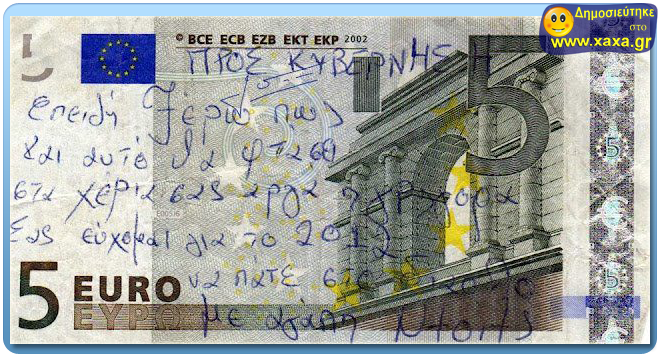 Δημοσιεύτηκε
στο
www.xaxa.gr
© BCE ECB EZB EKT EKP 2002
5
5
ΠΡΟΣ ΚΥΒΕΡΝΗΣΗ
επειδή ξέρω πως
και αυτό θα φτασει
στα χέρια σας αργα η γρηγορα
Σας ευχομαι για το 2012
να πάτε στο
με αγάπη
5 EURO
ΕΥΡΩ
5
5